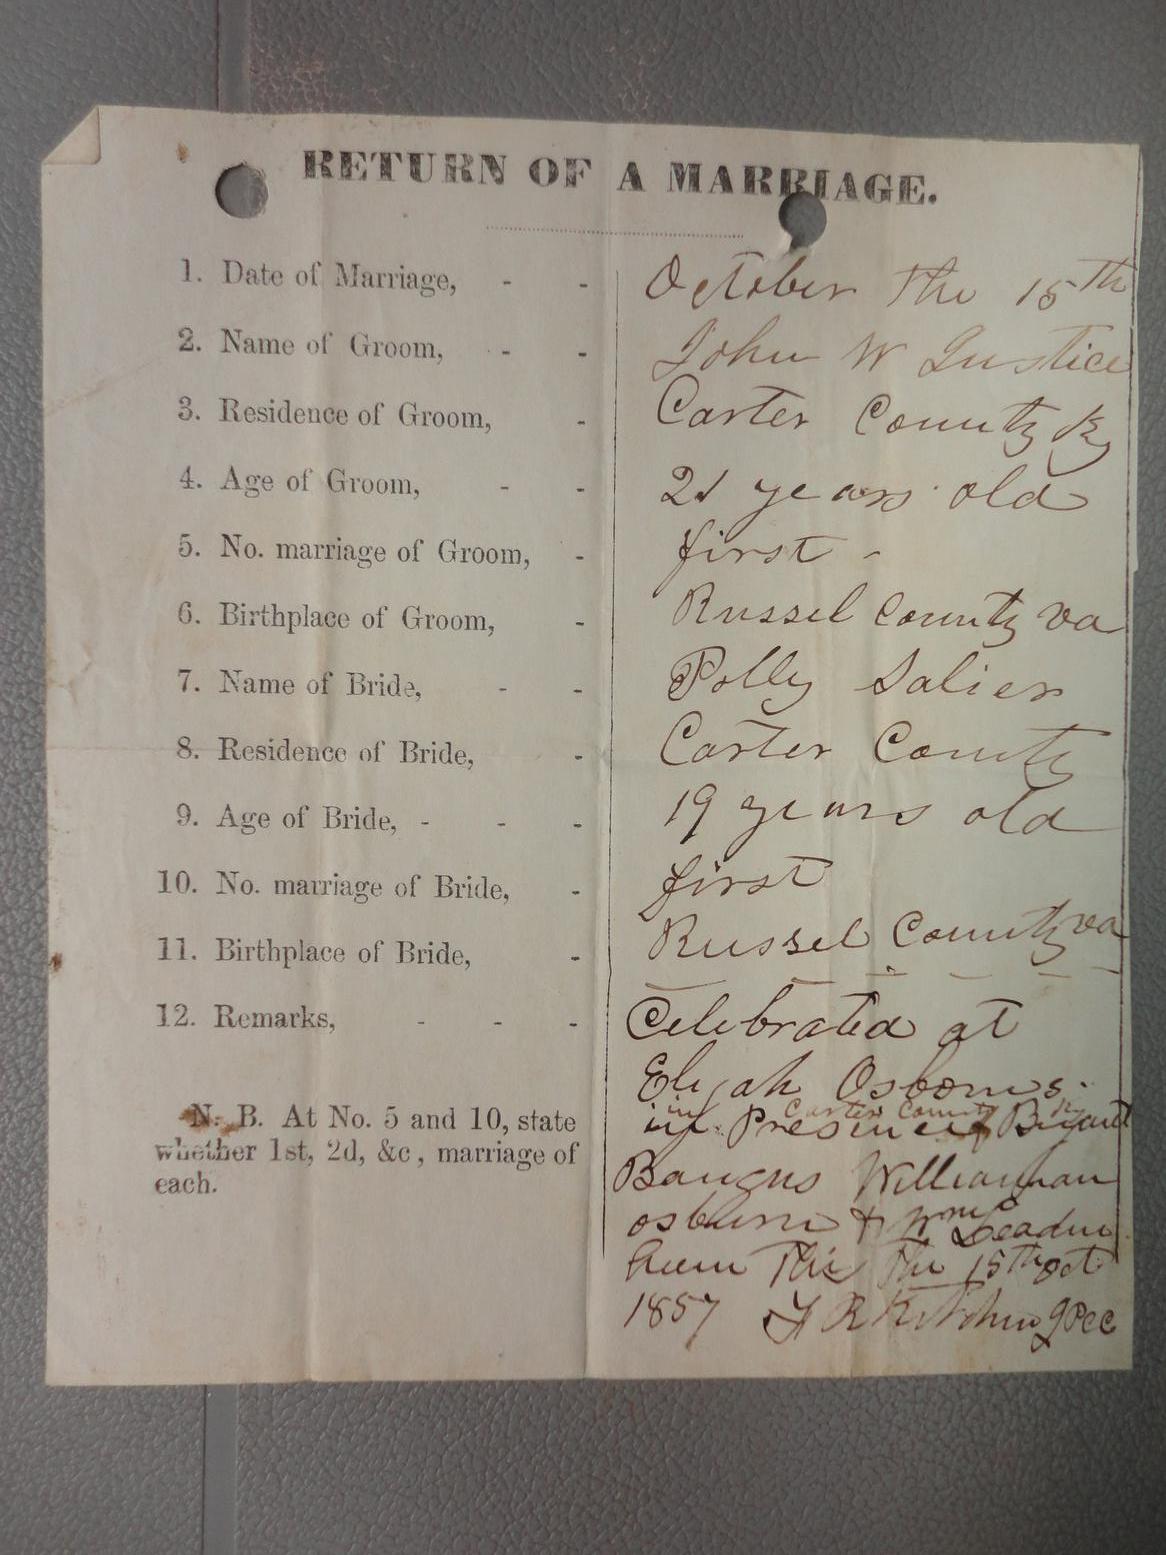 RETURN OF A MARRIAGE.
1. Date of Marriage, - - October the 15th
2. Name of Groom, - - John W Justice
3. Residence of Groom, - Carter County Ky
4. Age of Groom, - - 21 years old
5. No. marriage of Groom, - first -
6. Birthplace of Groom, - Russel County va
7. Name of Bride, - - Polly Salier
8. Residence of Bride, - Carter County
9. Age of Bride, - - - 19 years old
10. No. marriage of Bride, - first
11. Birthplace of Bride, - Russel County va
12. Remarks, - - - Celebrated at
Elijah Osborns
Carter County Ky
in Presence
Bangus
osburn & Wm
this the 15th oct
1857 J P C C
N. B. At No. 5 and 10, state
whether 1st, 2d, &c, marriage of
each.